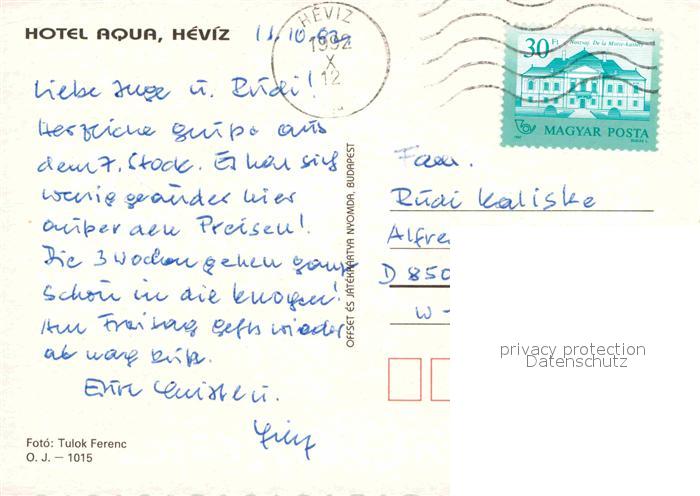 HOTEL AQUA, HÉVÍZ
HÉVIZ
1992
X
12
30 Ft
Noszvaj. De la Motte-kastély
MAGYAR POSTA
Liebe Inge u. Rudi!
Herzliche Grüße aus
dem 7. Stock. Es hat sich
wenig geändert hier
außer den Preisen!
Die 3 Wochen gehen ganz
schön in die Knochen!
Am Freitag geht's wieder
ab nach
Eure u.
Fotó: Tulok Ferenc
O. J. – 1015
OFFSET ÉS JÁTÉKKÁRTYA NYOMDA, BUDAPEST
Fam.
Rüdi Kaliske
Alfre
D 850
W -
privacy protection
Datenschutz